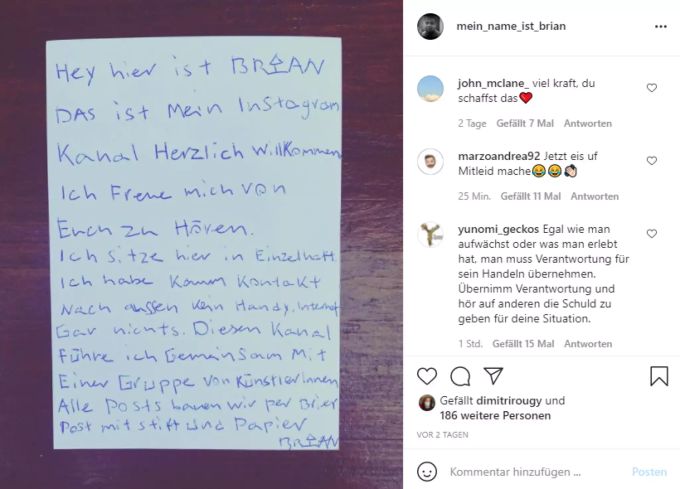 Hey hier ist BRIAN
DAS ist Mein Instagram
Kanal Herzlich Willkommen
Ich Freue mich von
Euch zu Hören.
Ich sitze hier in Einzelhaft.
Ich habe kaum kontakt
Nach aussen kein Handy, Internet
Gar nichts. Diesen Kanal
Führe ich Gemeinsam Mit
Einer Gruppe von Künstlerinnen
Alle Posts bauen wir per Brief
Post mit stift und Papier
BRIAN
mein_name_ist_brian
john_mclane_ viel kraft, du
schaffst das❤️
2 Tage Gefällt 7 Mal Antworten
marzoandrea92 Jetzt eis uf
Mitleid mache😂😂👏🏻
25 Min. Gefällt 11 Mal Antworten
yunomi_geckos Egal wie man
aufwächst oder was man erlebt
hat, man muss Verantwortung für
sein Handeln übernehmen.
Übernimm Verantwortung und
hör auf anderen die Schuld zu
geben für deine Situation.
1 Std. Gefällt 15 Mal Antworten
Gefällt dimitrirougy und
186 weitere Personen
VOR 2 TAGEN
Kommentar hinzufügen ... Posten